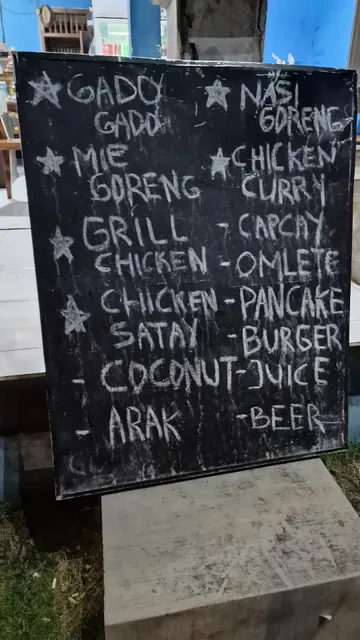 ☆ GADO
GADO
☆ MIE
GORENG
☆ GRILL
CHICKEN
☆ CHICKEN
SATAY
- COCONUT
- ARAK
☆ NASI
GORENG
☆ CHICKEN
CURRY
- CAPCAY
- OMLETE
- PANCAKE
- BURGER
- JUICE
- BEER